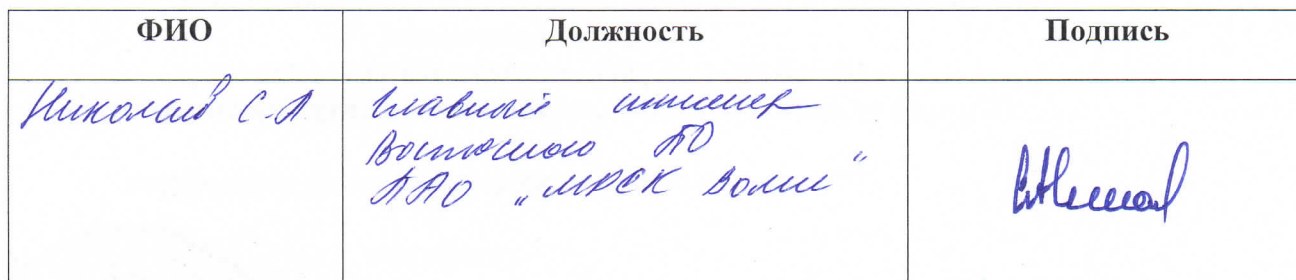 ФИО Должность Подпись
Николаев С.А Главный инженер
Восточного ПО
ПАО "МРСК Волги"